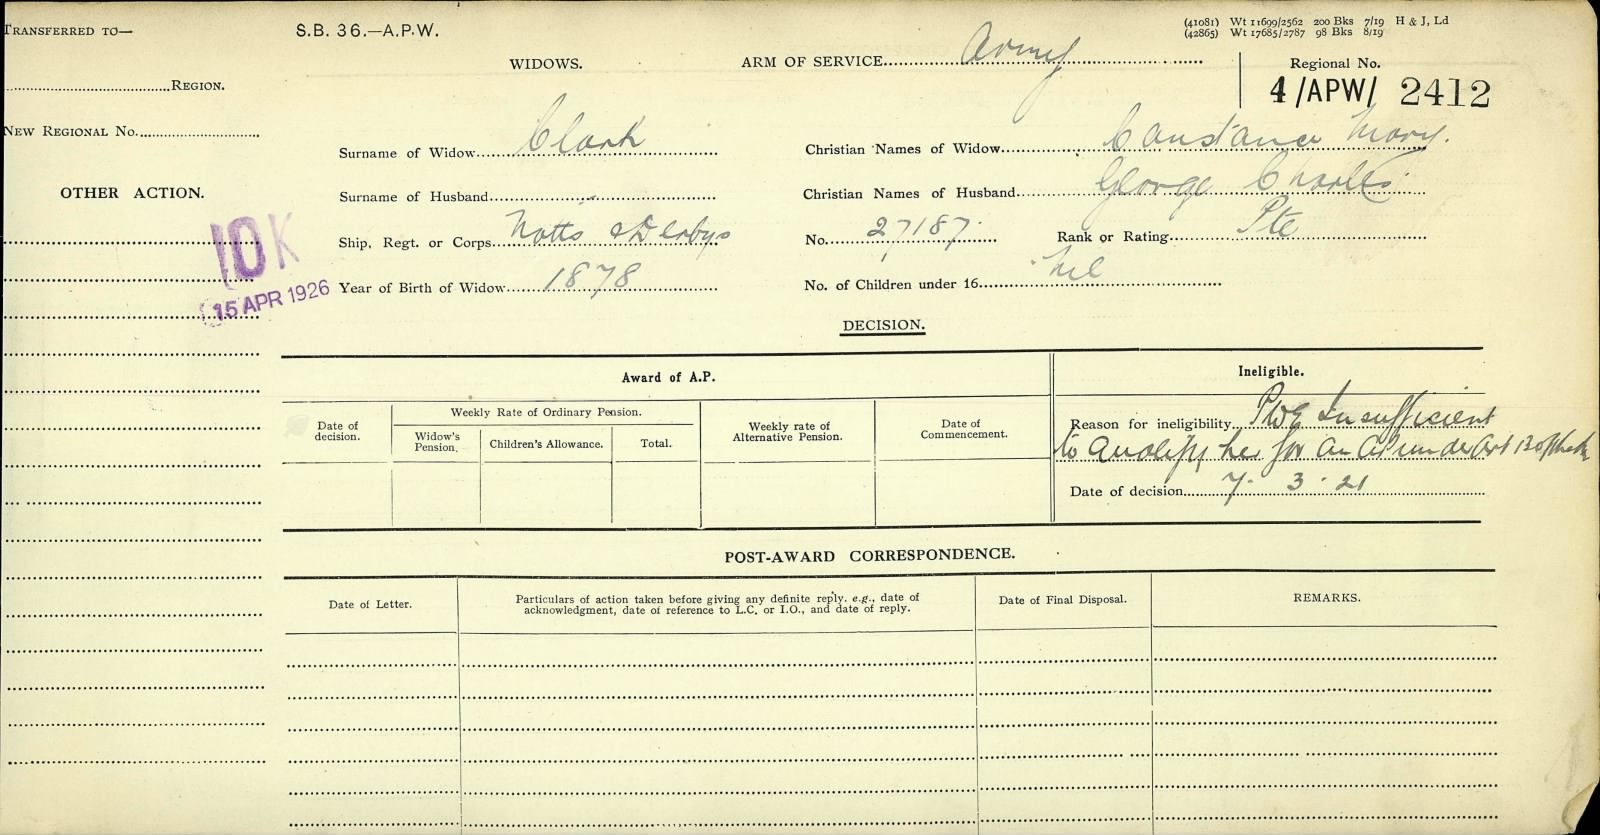 TRANSFERRED TO—
S.B. 36.—A.P.W.
(41081) Wt 11699/2562 200 Bks 7/19 H & J, Ld
(42865) Wt 17685/2787 98 Bks 8/19
WIDOWS.
ARM OF SERVICE Army
Regional No.
4/APW/ 2412
REGION.
NEW REGIONAL No.
Surname of Widow Clark
Christian Names of Widow Constance Mary.
OTHER ACTION.
Surname of Husband "
Christian Names of Husband George Charles
10K
Ship, Regt. or Corps Notts & Derbys
No. 27187
Rank or Rating Pte
15 APR 1926
Year of Birth of Widow 1878
No. of Children under 16 Nil
DECISION.
Award of A.P.
Ineligible.
Date of decision.
Weekly Rate of Ordinary Pension.
Widow's Pension.
Children's Allowance.
Total.
Weekly rate of Alternative Pension.
Date of Commencement.
Reason for ineligibility PWE Insufficient
to qualify her for an AP under Art 13 of the
Date of decision 7. 3. 21
POST-AWARD CORRESPONDENCE.
Date of Letter.
Particulars of action taken before giving any definite reply. e.g., date of
acknowledgment, date of reference to L.C. or I.O., and date of reply.
Date of Final Disposal.
REMARKS.